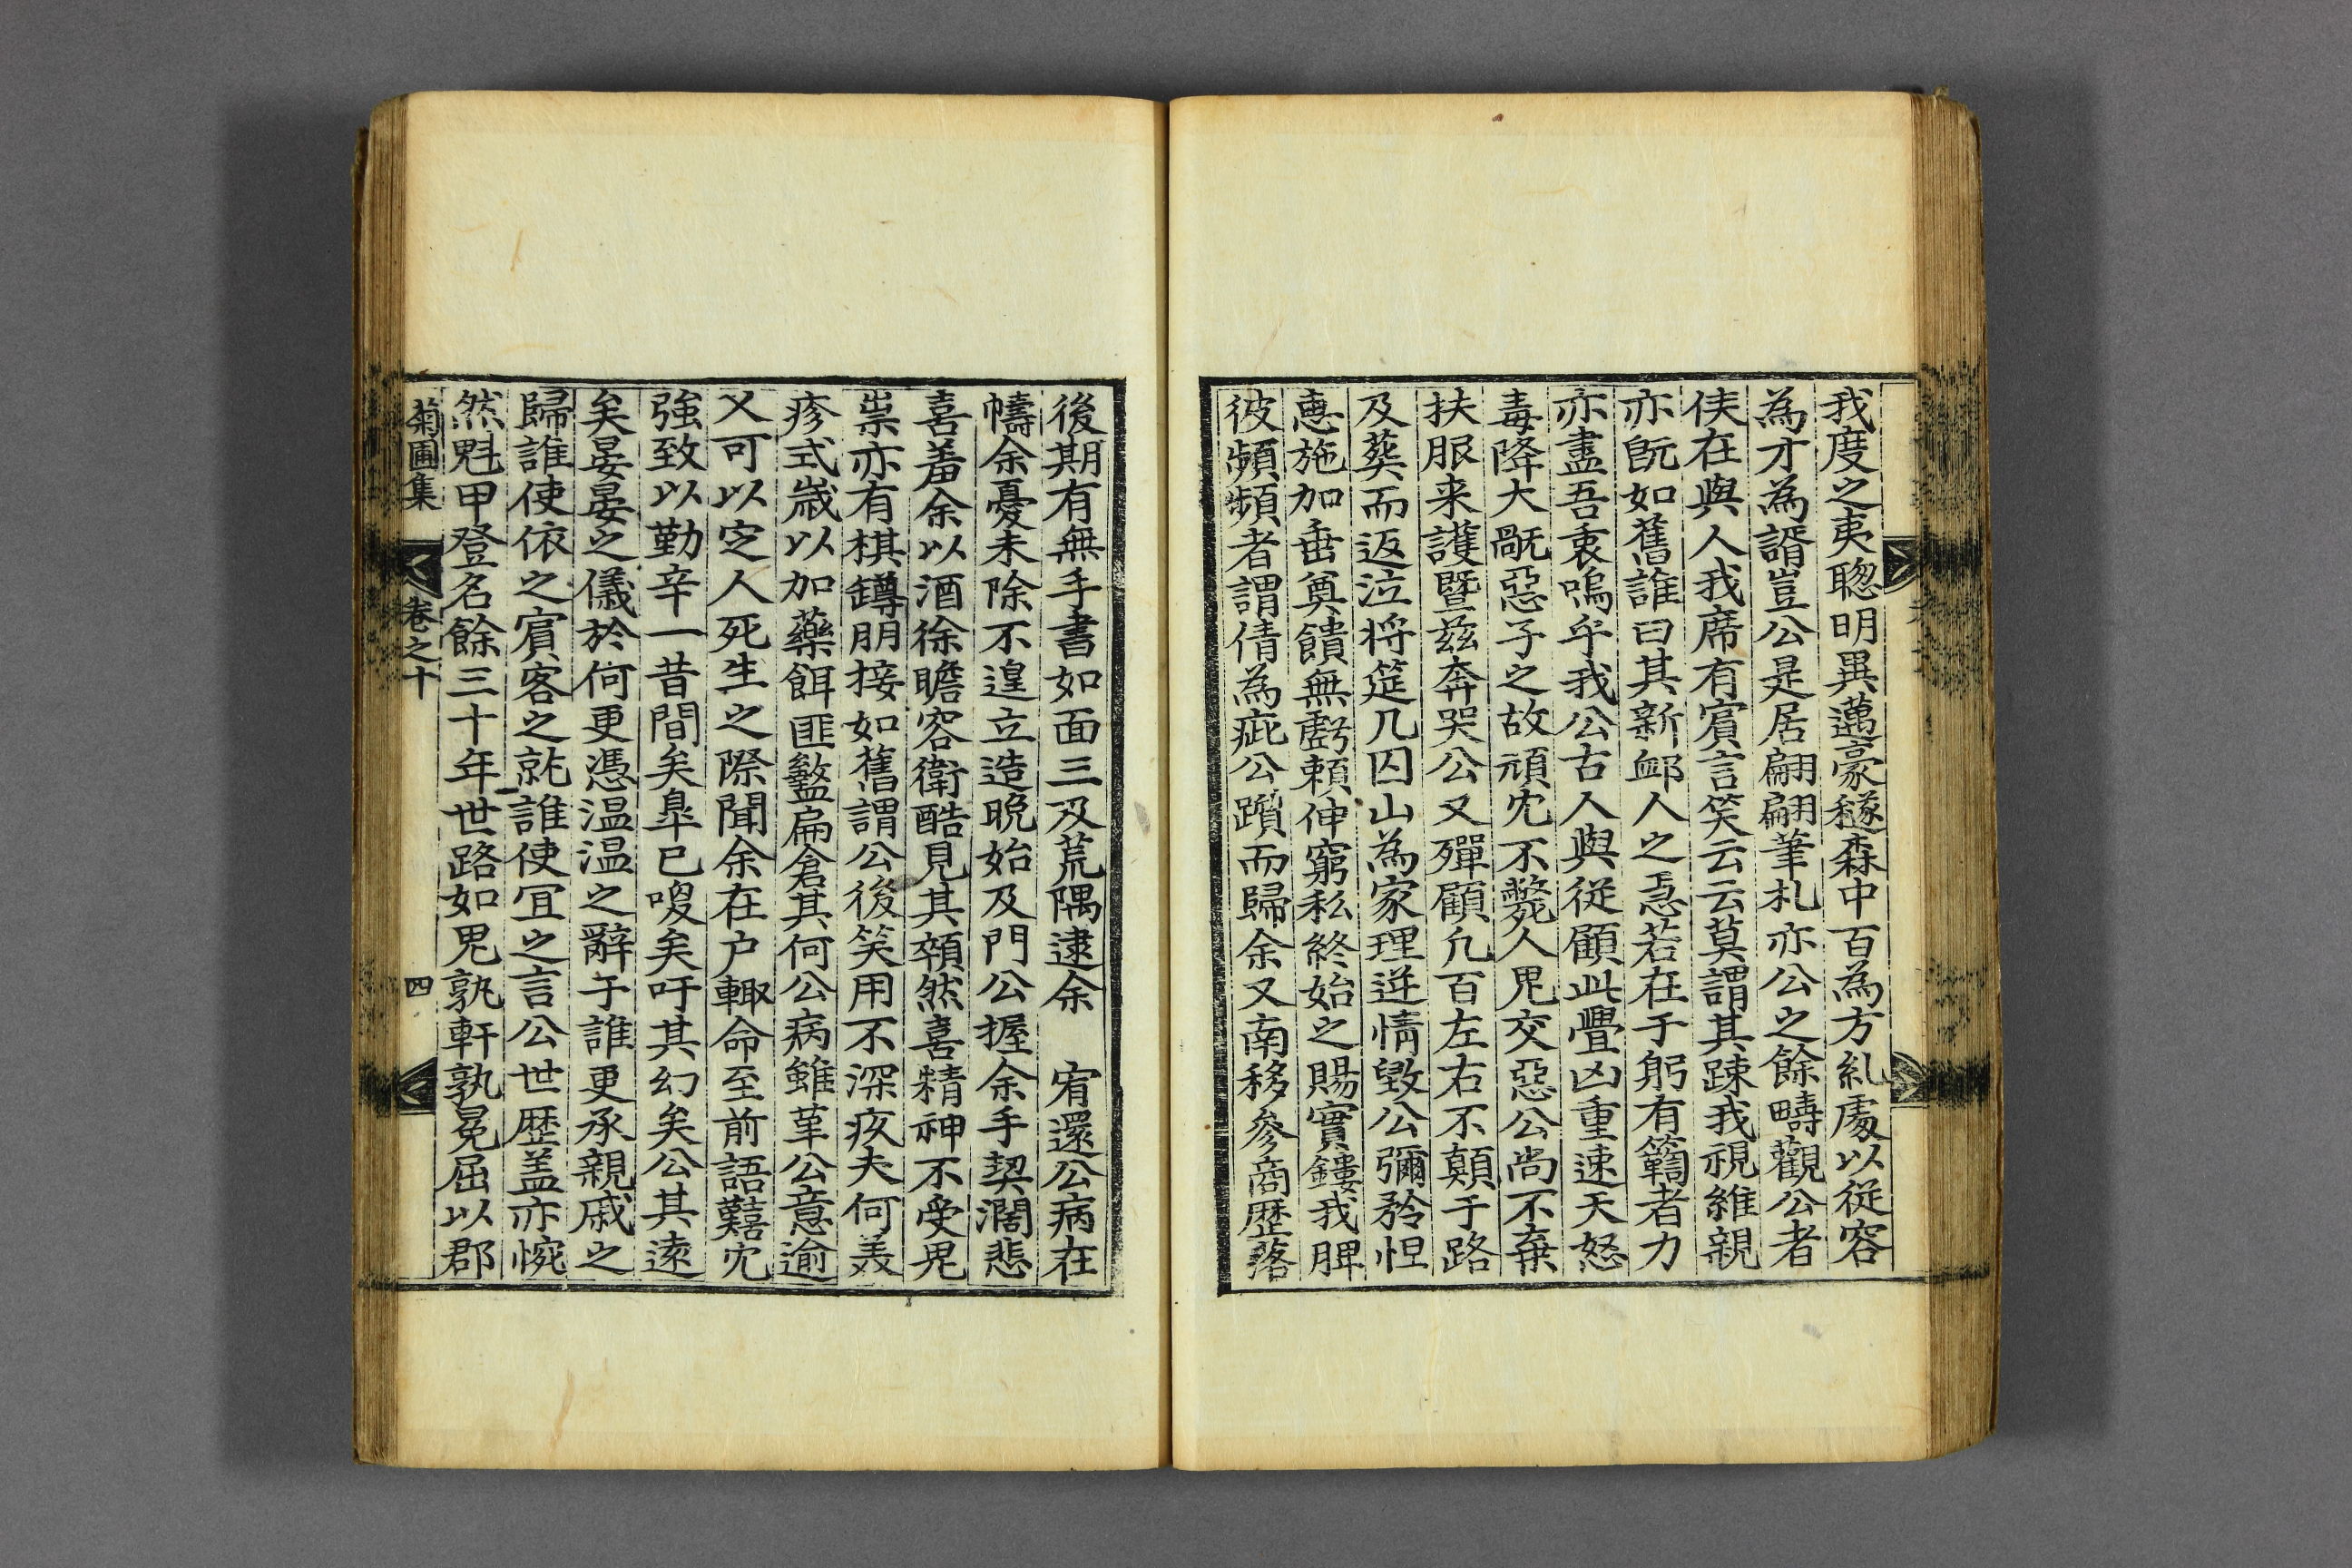 我度之夷聰明異邁豪穟森中百為方糺處以從容
為才為諝豈公是居翩翩筆札亦公之餘疇觀公者
俠在與人我席有賔言笑云云莫謂其踈我視維親
亦旣如舊誰曰其新䘏人之急若在于躬有籲者力
亦盡吾衷嗚乎我公古人與從顧此釁凶重速天怒
毒降大翫惡子之故頑宂不斃人鬼交惡公尚不棄
扶服来護曁茲奔哭公又殫顧凢百左右不顛于路
及葬而返泣将筵几囚山為家理迸情毀公彌矜怛
惠施加垂奠饋無虧頼伸窮私終始之賜實鏤我脾
彼頻頻者謂倩為疵公躓而歸余又南移參商歴落
後期有無手書如面三及荒隅逮余　宥還公病在
幬余憂未除不遑立造晩始及門公握余手契濶悲
喜羞余以酒徐瞻容衛酷見其顇然喜精神不受鬼
祟亦有棋罇朋接如舊謂公後笑用不深疚夫何美
疹式歳以加藥餌匪盭扁倉其何公病雖革公意逾
乂可以定人死生之際聞余在户輙命至前語囏宂
強致以勤辛一昔間矣皐已嗄矣吁其幻矣公其逺
矣晏晏之儀於何更憑温温之辭于誰更承親戚之
歸誰使依之賔客之就誰使冝之言公世歴盖亦惋
然魁甲登名餘三十年世路如鬼孰軒孰冕屈以郡
菊圃集　卷之十　四